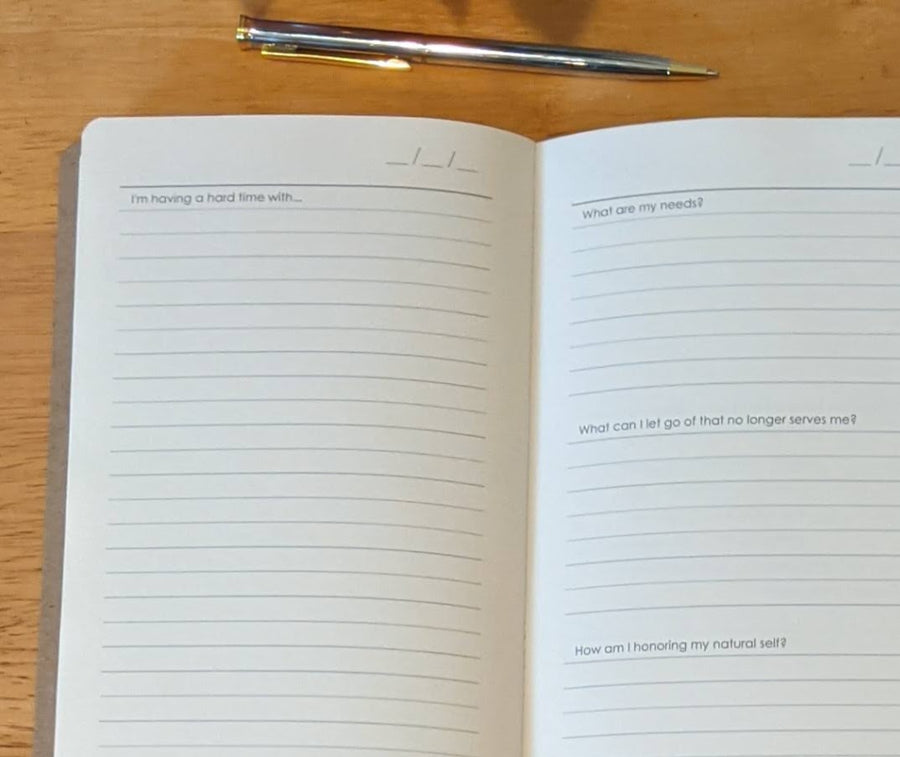 __/__/__
I'm having a hard time with...
__/__
What are my needs?
What can I let go of that no longer serves me?
How am I honoring my natural self?